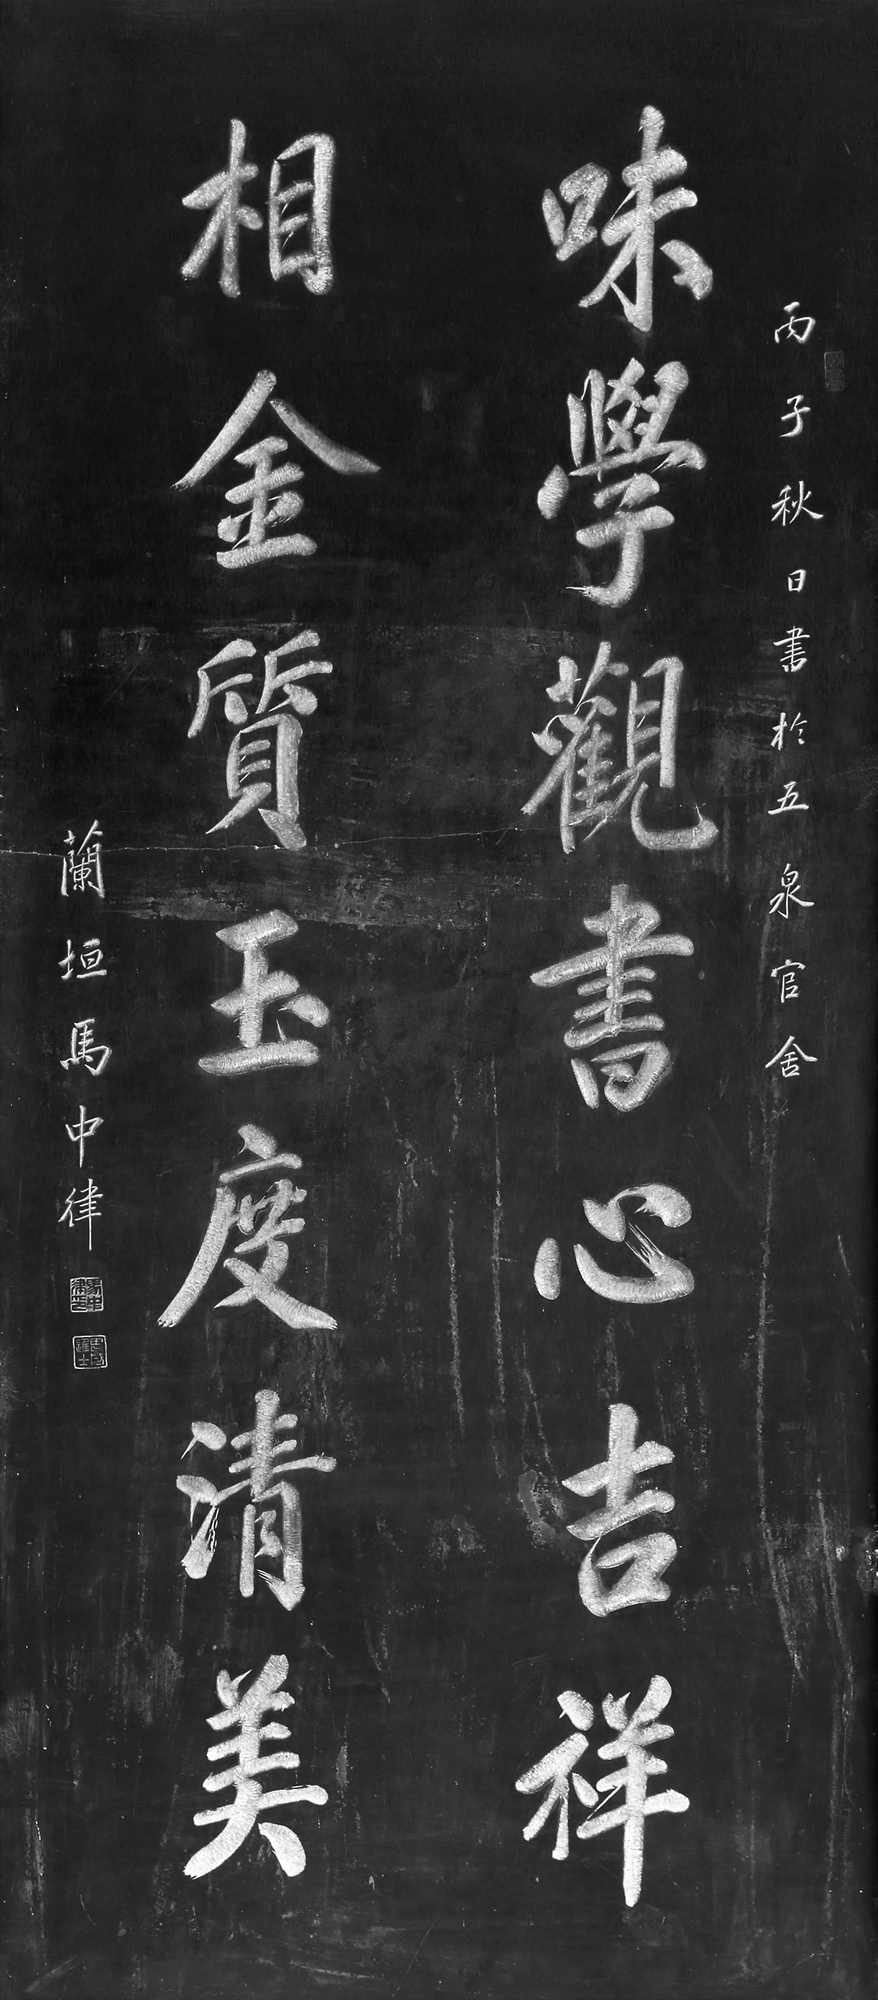 丙子秋日書於五泉官舍
味學觀書心吉祥
相金質玉度清美
蘭垣馬中律